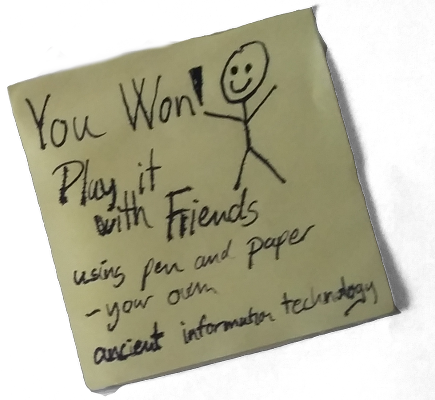 You Won!
Play it
with Friends
using pen and paper
- your own
ancient information technology